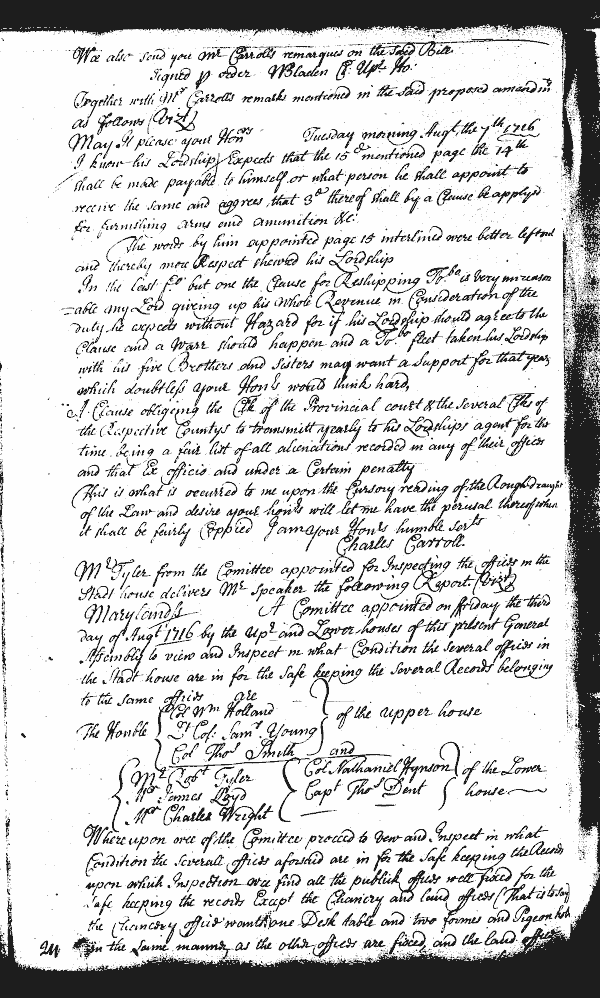 Wee also send you Mr Carrolls remarques on the said Bill
Signed p order WBladen Cl. Upr Ho:
Together with Mr Carrolls remarks mentioned in the said proposed amendmts
as follows (Vizt)
May it please your Honrs Tuesday morning Augt, the 7th 1716
I know his Lordship Expects that the 15d mentioned page the 14th
shall be made payable to himself or what person he shall appoint to
receive the same and aggrees that 3d thereof shall by a Clause be apply'd
for furnishing arms and amunition &c:
The words by him appointed page 15 interlined were better left out
and thereby more Respect shewed his Lordship
In the Last fo but one the Clause for Reshipping Tobo is very unreason
=able my Lord giveing up his whole Revenue in Consideration of the
duty he expects without Hazard for if his Lordship should agree to the
Clause and a Warr should happen and a Tobo fleet taken his Lordship
with his five Brothers and Sisters may want a Support for that year
which doubtless your Honrs would think hard,
A Clause obligeing the Clk of the Provincial court & the several Clks of
the Respective Countys to transmitt yearly to his Lordships agent for the
time being a fair list of all alienations recorded in any of their offices
and that Ex officio and under a Certain penalty
This is what is occurred to me upon the Cursory reading of the Rough draught
of the Law and desire your honrs will let me have the perusal thereof when
it shall be fairly Coppied I am your Honrs humble Servt
Charles Carroll
Mr Tyler from the Comittee appointed for Inspecting the offices in the
Stadt house delivers Mr Speaker the following Report (Vizt)
Maryland ss A Comittee appointed on ffriday the third
day of Augt 1716 by the Upr and Lower houses of this present General
Assembly to view and Inspect in what Condition the several offices in
the Stadt house are in for the Safe keeping the Several Records belonging
to the same offices are
The Honble Col Wm Holland
Lt Col: Saml Young of the upper house
Col Thos Smith and
Mr Robt Tyler Col Nathaniel Hynson of the Lower
Mr James Loyd Capt Thos Dent house
Mr Charles Wright
Where upon wee of the Comittee proceed to vew and Inspect in what
Condition the severall offices aforsaid are in for the Safe keeping the Records
upon which Inspection wee find all the publick offices well fixed for the
Safe keeping the records Except the Chancery and land offices (That is to say
the Chancery office wants one Desk table and two formes and Pigeon holes
in the same manner as the other offices are fixed, and the land office
24